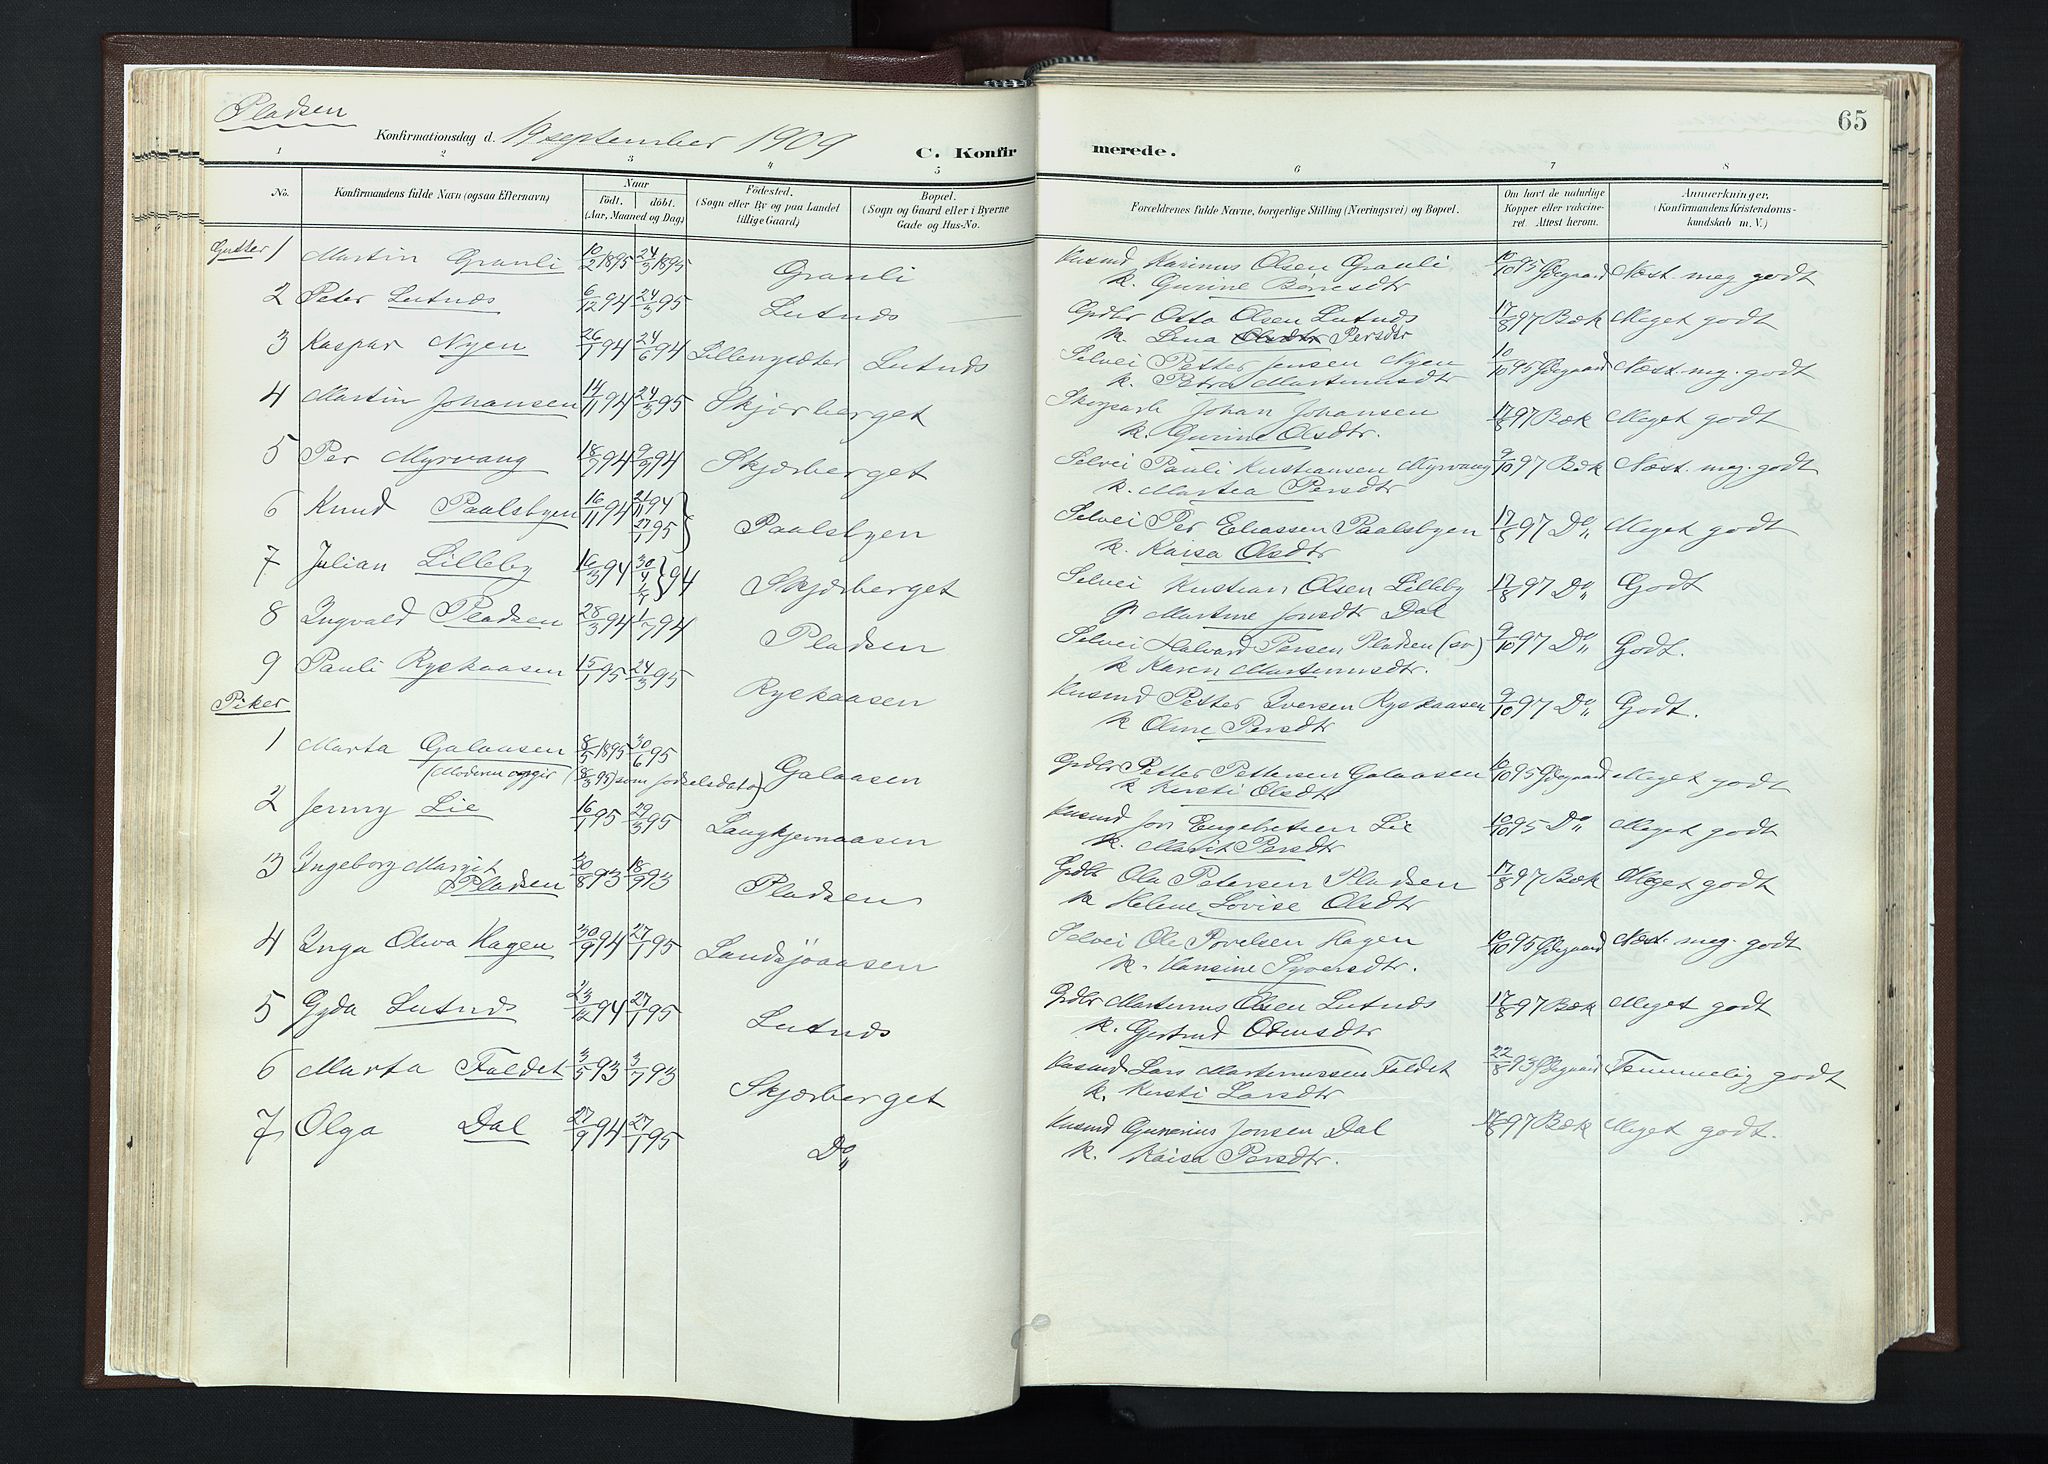 Pladsen
Konfirmationsdag d. 19 september 1909
C. Konfirmerede.
65
1 2 3 4 5 6 7 8
No. Konfirmandens fulde Navn (ogsaa Efternavn) Naar født. døbt. (Aar, Maaned og Dag) Fødested. (Sogn eller By og paa Landet tillige Gaard) Bopæl. (Sogn og Gaard eller i Byerne Gade og Hus-No. Forældrenes fulde Navne, borgerlige Stilling (Næringsvei) og Bopæl. Om havt de naturlige Kopper eller vakcineret. Attest herom. Anmerkninger. (Konfirmandens Kristendomskundskab m. V.)
Gutter 1 Martin Granli 10/2 1895 24/3 1895 Granli Husmd Karinus Olsen Granli 10/10 95 Ødegaard Næst. meg godt
k. Gurine Børresdtr
2 Peter Lutnæs 6/12 94 24/3 95 Lutnæs Grdbr Otto Olsen Lutnæs 17/8 97 Bæk Meget godt
k. Lena Olsdtr Persdtr
3 Kaspar Nyen 26/1 94 24/6 94 Lillenysæter Lutnæs Selvei Petter Jensen Nyen 10/10 95 Ødegaard Næst. meg. godt
k. Petra Martinusdtr
4 Martin Johansen 14/11 94 24/3 95 Skjærberget Johan Johansen 17/8 97 Bæk Meget godt
k. Gurine Olsdtr.
5 Per Myrvang 18/7 94 9/9 94 Skjærberget Selvei Pauli Kristiansen Myrvang 9/10 97 Bæk Næst. meg. godt
k. Martea Persdtr
6 Knud Paalsbyen 16/11 94 21/11 94 27/1 95 Paalsbyen Selvei Per Eliassen Paalsbyen 17/8 97 Do Meget godt
k. Kaisa Olsdtr
7 Julian Lilleby 16/3 94 30/4 1/7 94 Skjærberget Selvei Kristian Olsen Lilleby 17/8 97 Do Godt
p Martine Jonsdtr Dal
8 Ingvald Pladsen 28/3 94 1/7 94 Pladsen Selvei Halvard Persen Pladsen (sv) 9/10 97 Do Godt.
k Karen Martinusdtr.
9 Pauli Ryskaasen 15/1 95 24/3 95 Ryskaasen Husmd Petter Iversen Ryskaasen 9/10 97 Do Godt.
k Oline Persdtr
Piker
1 Marta Galaasen 8/5 1895 30/6 95 Galaasen Grdbr Petter Pettersen Galaasen 10/10 95 Ødegaard Meget godt
(Moderen opgir (8/3 95) som fødselsdato) k Kersti Olsdtr
2 Jenny Lie 16/1 95 29/3 95 Langkjernaasen Husmd Jon Engebretsen Lie 10/10 95 Do Meget godt
k. Marit Persdtr
3 Ingeborg Margit Pladsen 30/8 93 18/9 93 Pladsen Grdbr Ole Petersen Pladsen 17/8 97 Bæk Meget godt
k Helene Lovise Olsdtr
4 Inga Oliva Hagen 30/9 94 27/1 95 Landsjøaasen Selvei Ole Povelsen Hagen 10/10 95 Ødegaard Næst. meg. godt
k. Hansine Syversdtr.
5 Gyda Lutnæs 23/12 94 27/1 95 Lutnæs Grdbr Martinus Olsen Lutnæs 17/8 97 Bæk Meget godt
k. Gjertrud Odensdtr
6 Marta Faldet 3/5 93 3/7 93 Skjærberget Husmd Lars Martinussen Faldet 22/8 93 Ødegaard Temmelig godt
k. Kersti Larsdtr
7 Olga Dal 27/9 94 27/1 95 Do Husmd Gunerius Jonsen Dal 17/8 97 Bæk Meget godt.
k. Kaisa Persdtr.